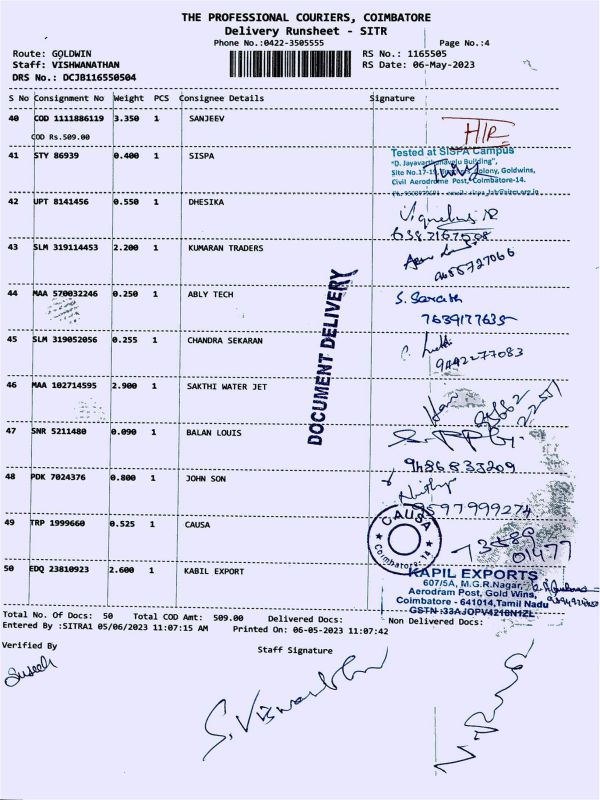 THE PROFESSIONAL COURIERS, COIMBATORE
Delivery Runsheet - SITR
Phone No.:0422-3505555 Page No.:4
Route: GOLDWIN RS No.: 1165505
Staff: VISHWANATHAN RS Date: 06-May-2023
DRS No.: DCJB116550504
S No Consignment No Weight PCS Consignee Details Signature
40 COD 1111886119 3.350 1 SANJEEV
COD Rs.509.00
H/R
41 STY 86939 0.400 1 SISPA
Tested at SISPA Campus
"D. Jayavarthanavelu Building",
Site No.17-19, Colony, Goldwins,
Civil Aerodrome Post, Coimbatore-14.
42 UPT 8141456 0.550 1 DHESIKA
43 SLM 319114453 2.200 1 KUMARAN TRADERS
44 MAA 570032246 0.250 1 ABLY TECH
S. Sarath
7639177635
45 SLM 319052056 0.255 1 CHANDRA SEKARAN
9442277083
46 MAA 102714595 2.900 1 SAKTHI WATER JET
DOCUMENT DELIVERY
47 SNR 5211480 0.090 1 BALAN LOUIS
9486833209
48 PDK 7024376 0.800 1 JOHN SON
9597999274
49 TRP 1999660 0.525 1 CAUSA
CAUSA
Coimbatore-14
01477
50 EDQ 23810923 2.600 1 KABIL EXPORT
KAPIL EXPORTS
607/5A, M.G.R.Nagar,
Aerodram Post, Gold Wins,
Coimbatore - 641014,Tamil Nadu
GSTN :33AJOPV4218N1ZL
Total No. Of Docs: 50 Total COD Amt: 509.00 Delivered Docs: Non Delivered Docs:
Entered By :SITRA1 05/06/2023 11:07:15 AM Printed On: 06-05-2023 11:07:42
Verified By Staff Signature
Suresh
S. Viswanathan